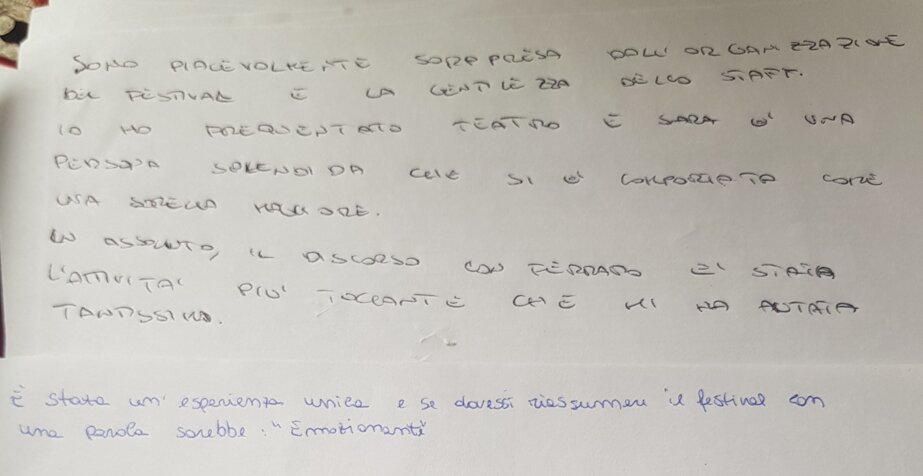 SONO PIACEVOLMENTE SORPRESA DALL'ORGANIZZAZIONE
DEL FESTIVAL E LA GENTILEZZA DELLO STAFF.
IO HO FREQUENTATO TEATRO E SARA E' UNA
PERSONA SPLENDIDA CHE SI E' COMPORTATA COME
UNA SORELLA MAGGIORE.
IN ASSOLUTO, IL DISCORSO CON FERRARO E' STATA
L'ATTIVITA' PIU' TOCCANTE CHE MI HA AIUTATA
TANTISSIMO.
È stata un'esperienza unica e se dovessi riassumere il festival con
una parola sarebbe: "Emozionante"